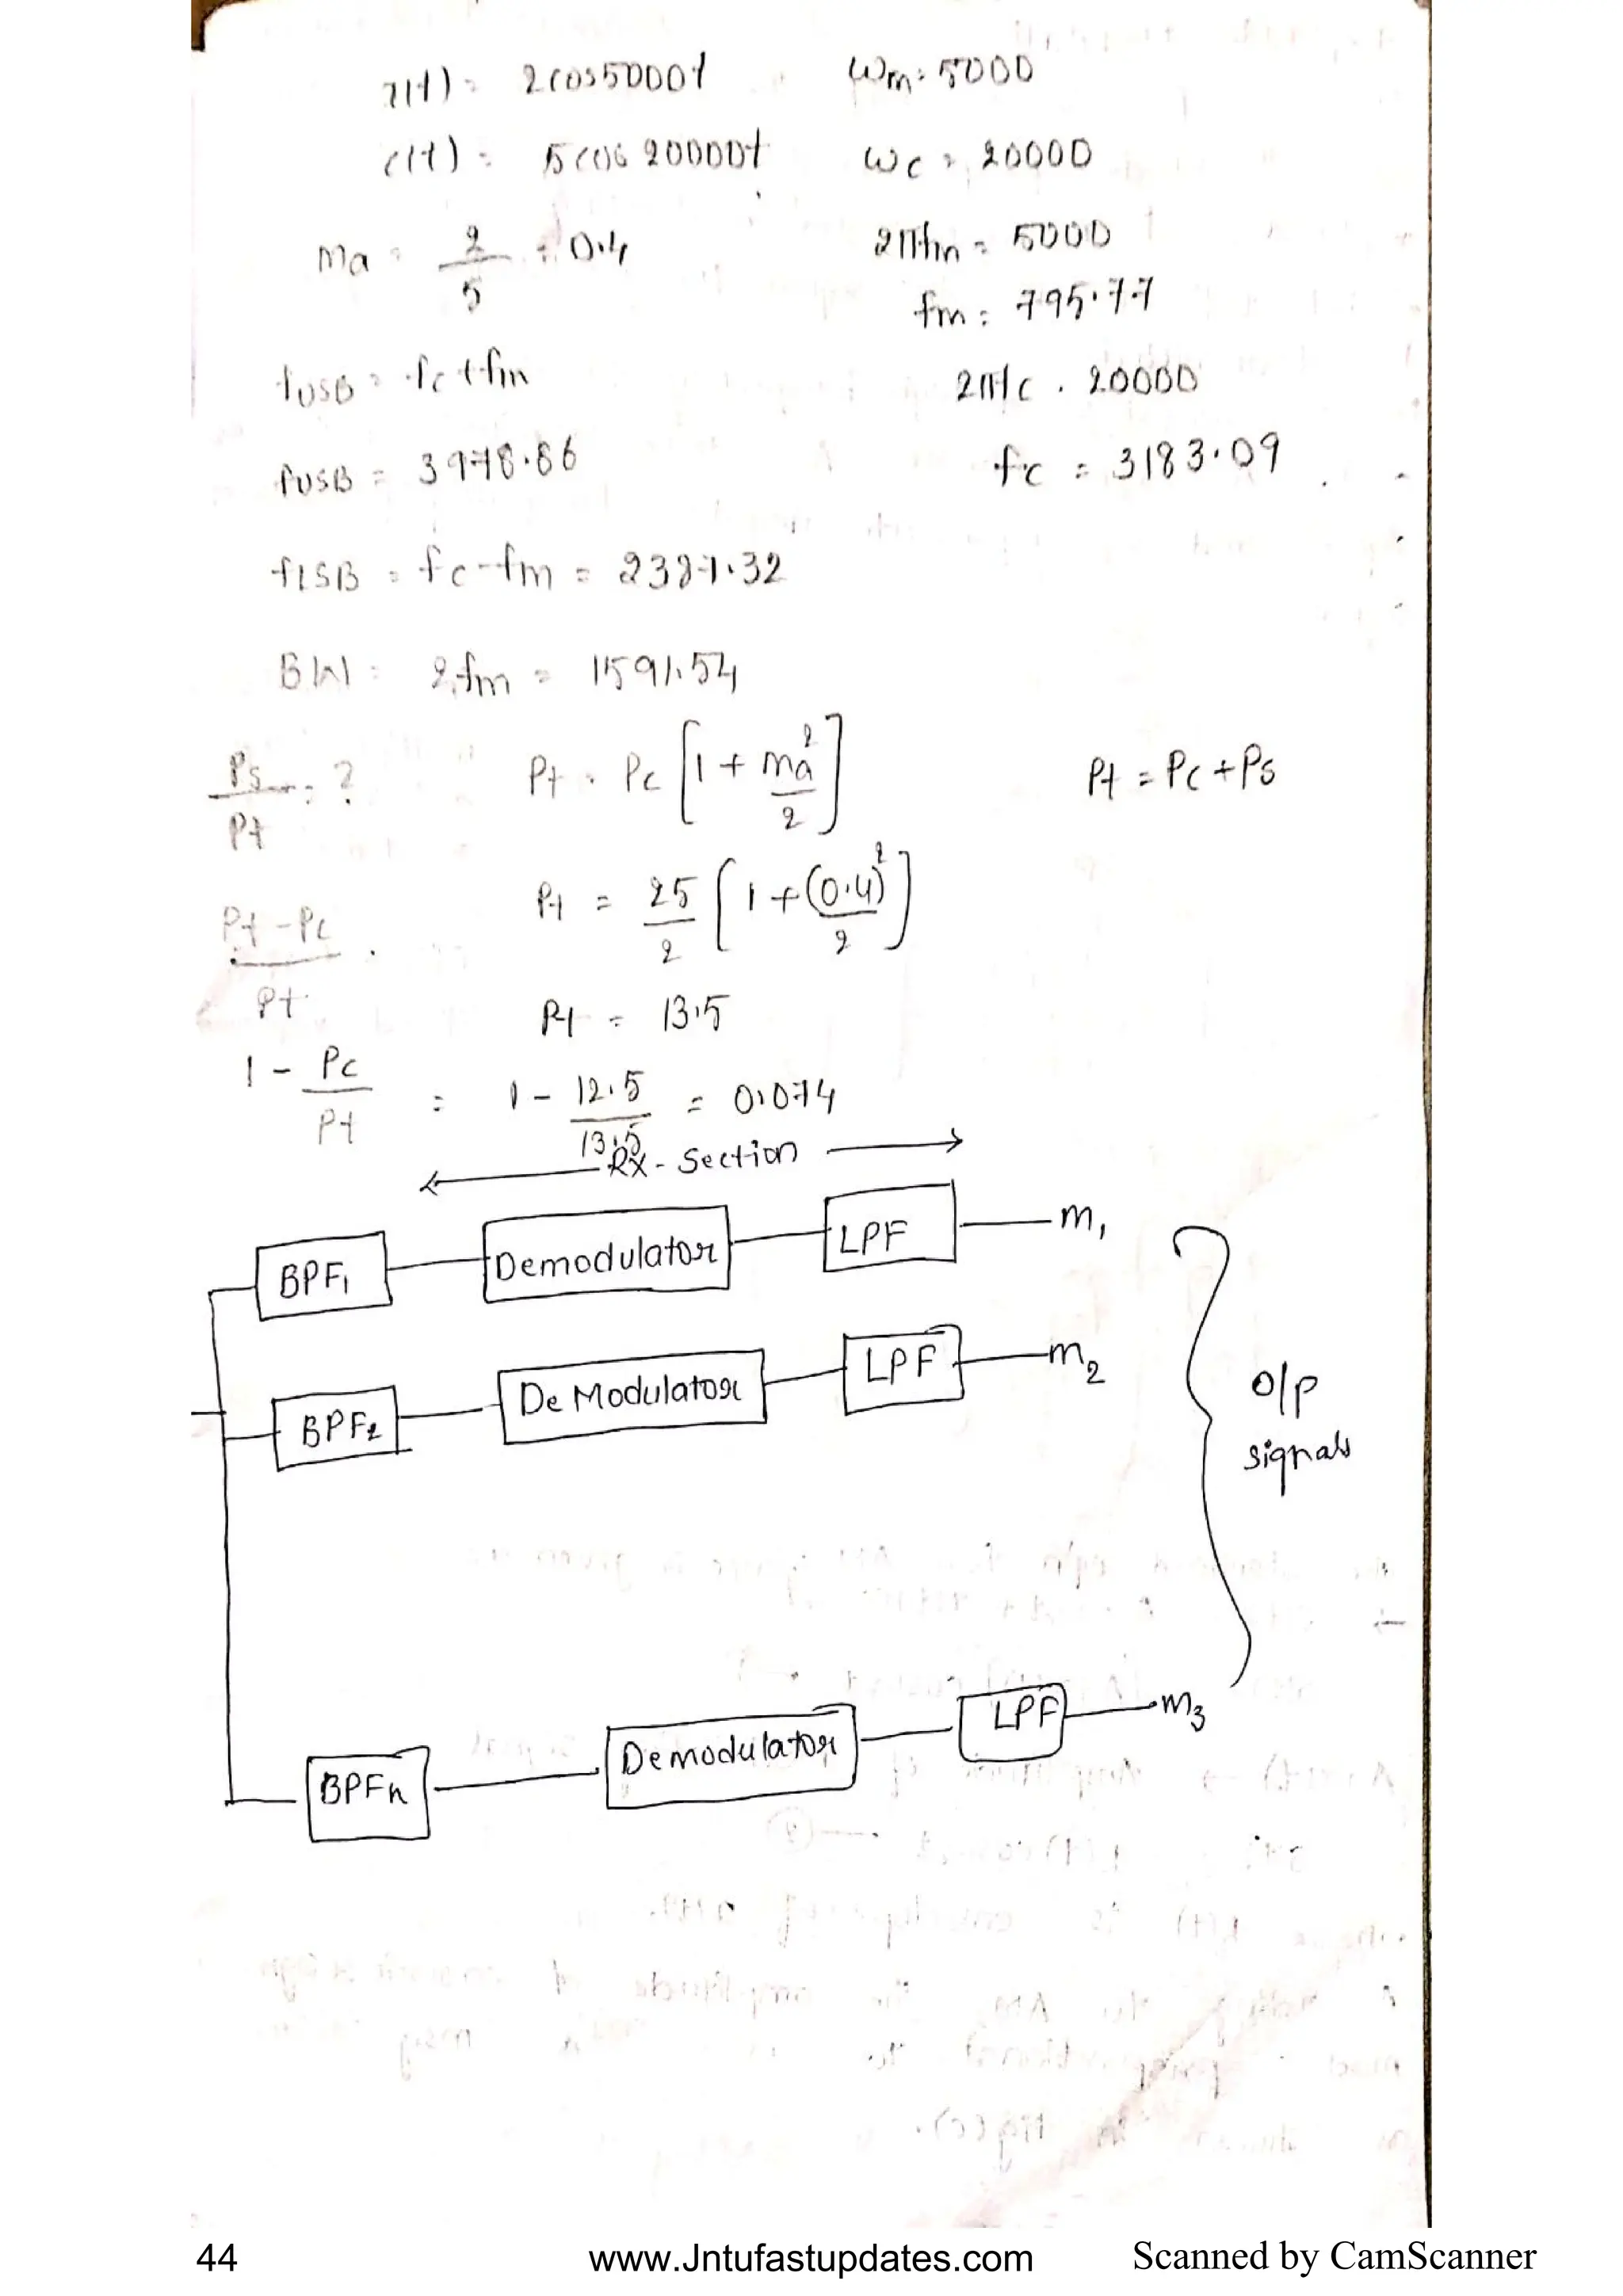 x(t) = 2cos5000t ωm = 5000
c(t) = 5cos 20000t ωc = 20000
ma = 2/5 = 0.4 2πfm = 5000
fm = 795.77
fUSB = fc + fm 2πfc = 20000
fUSB = 3978.86 fc = 3183.09
fLSB = fc - fm = 2387.32
BW = 2fm = 1591.54
Ps/Pt = ? Pt = Pc [1 + ma²/2] Pt = Pc + Ps
Pt - Pc/Pt Pt = 25/2 [1 + (0.4)²/2]
Pt = 13.5
1 - Pc/Pt = 1 - 12.5/13.5 = 0.074
Rx - Section
BPF1 Demodulator LPF m1
BPF2 De Modulator LPF m2
O/p
signals
BPFn Demodulator LPF m3
44 www.Jntufastupdates.com Scanned by CamScanner